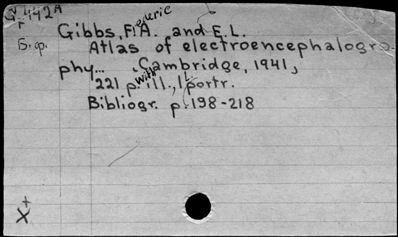 442A
Gibbs, F. A. and E. L.
Atlas of electroencephalogra
phy... Cambridge, 1941,
221 p. with ill., 1 portr.
Bibliogr. p. 198-218
X+